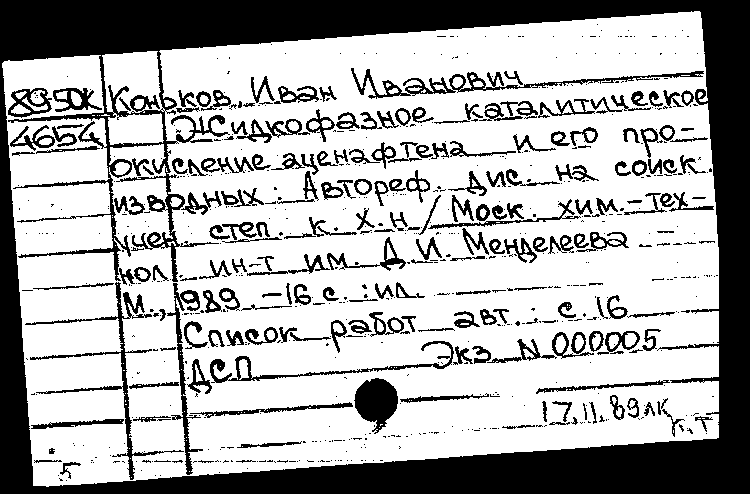 8950К Коньков, Иван Иванович
4654 Жидкофазное каталитическое
окисление аценафтена и его про-
изводных : Автореф. дис. на соиск.
учен. степ. к. х. н / Моск. хим.-тех-
нол. ин-т им. Д. И. Менделеева. -
М., 1989. - 16 с. : ил.
Список работ авт. : с. 16
ДСП Экз N 000005
17.11.89 лк
п.т
5